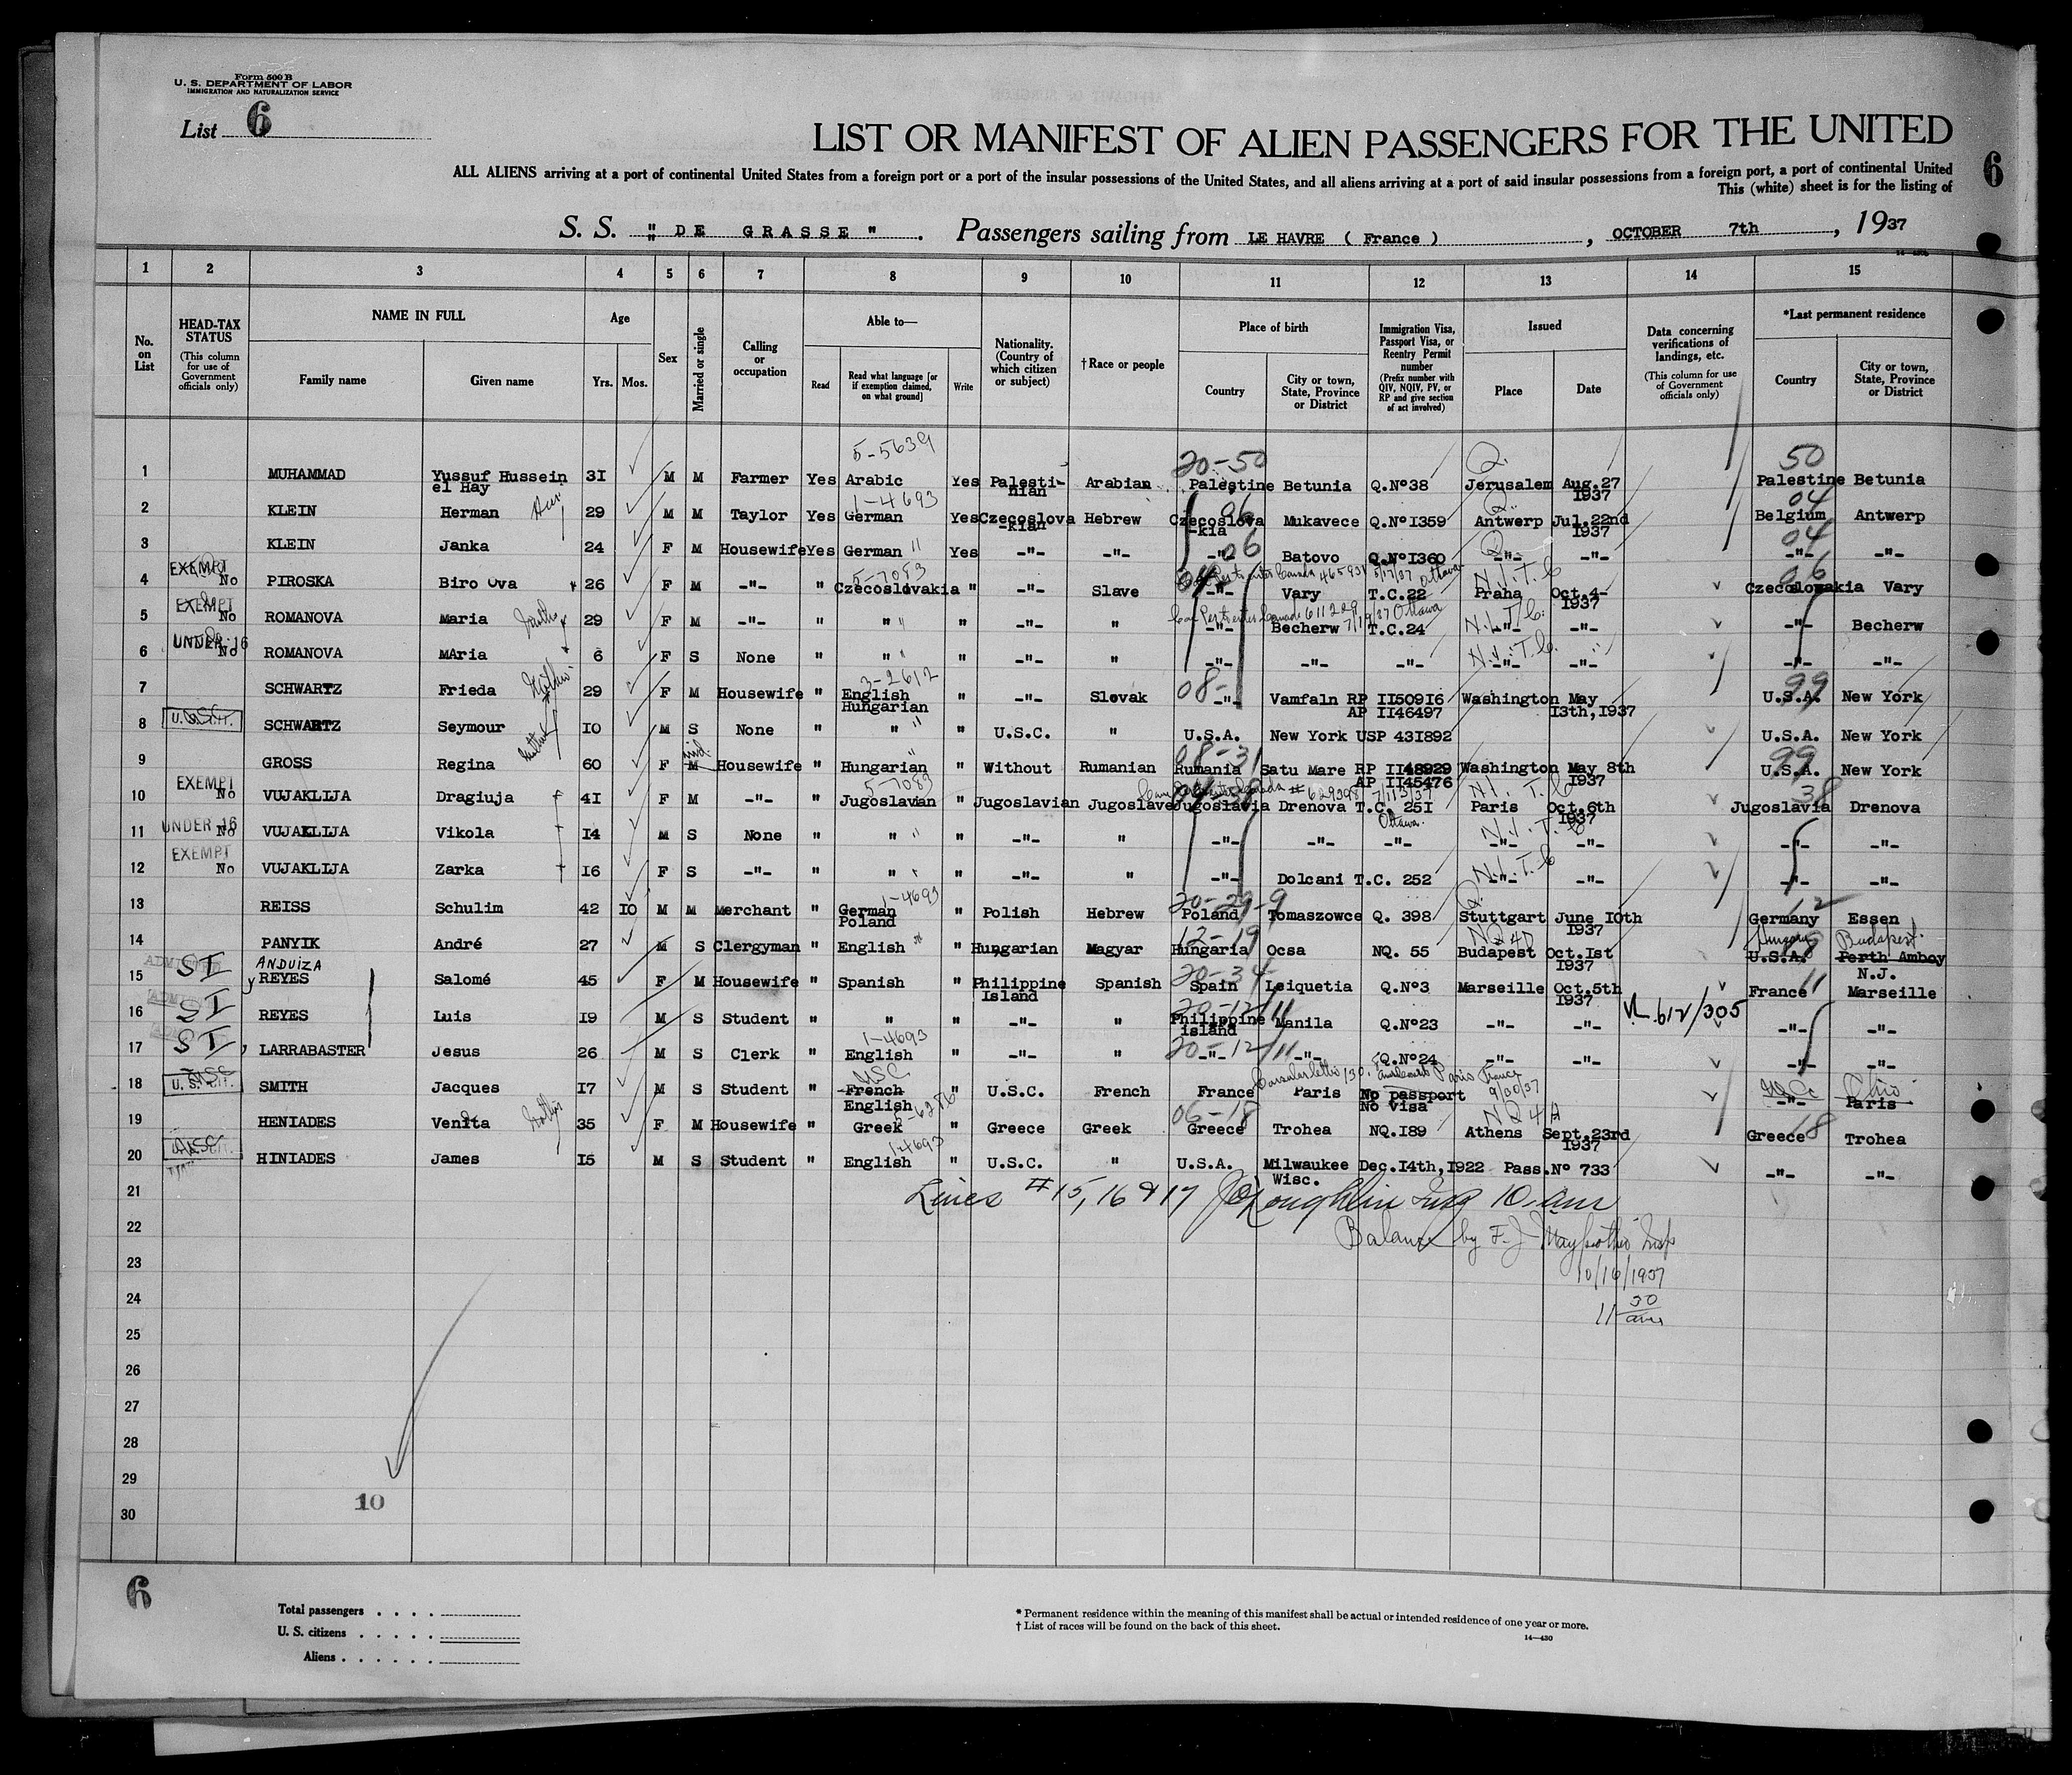 Form 500 B
U. S. DEPARTMENT OF LABOR
IMMIGRATION AND NATURALIZATION SERVICE
List 6
LIST OR MANIFEST OF ALIEN PASSENGERS FOR THE UNITED
ALL ALIENS arriving at a port of continental United States from a foreign port or a port of the insular possessions of the United States, and all aliens arriving at a port of said insular possessions from a foreign port, a port of continental United
This (white) sheet is for the listing of
6
S. S. " DE GRASSE " . Passengers sailing from LE HAVRE ( France ) , OCTOBER 7th , 1937
1 2 3 4 5 6 7 8 9 10 11 12 13 14 15
No. on List
HEAD-TAX STATUS (This column for use of Government officials only)
NAME IN FULL Family name Given name
Age Yrs. Mos.
Sex
Married or single
Calling or occupation
Able to— Read Read what language [or if exemption claimed, on what ground] Write
Nationality. (Country of which citizen or subject)
†Race or people
Place of birth Country City or town, State, Province or District
Immigration Visa, Passport Visa, or Reentry Permit number (Prefix number with QIV, NQIV, PV, or RP and give section of act involved)
Issued Place Date
Data concerning verifications of landings, etc. (This column for use of Government officials only)
*Last permanent residence Country City or town, State, Province or District
5-5639 20-50 Q. 50
1 MUHAMMAD Yussuf Hussein el Hay 31 M M Farmer Yes Arabic Yes Palesti-nian Arabian Palestine Betunia Q.N°38 Jerusalem Aug.27 1937 Palestine Betunia
1-4693 06 Q. 04
2 KLEIN Herman 29 M M Taylor Yes German Yes Czecoslova-kian Hebrew Czecoslova-kia Mukavece Q.N°1359 Antwerp Jul.22nd 1937 Belgium Antwerp
06 Q 04
3 KLEIN Janka 24 F M Housewife Yes German " Yes -"- -"- -"- Batovo Q.N°1360 -"- -"- -"- -"-
EXEMPT 5-7083 465931 5/17/37 Ottawa N.I.T.C 06
4 No PIROSKA Biro Ova 26 F M -"- " Czecoslovakia " -"- Slave -"- Vary T.C.22 Praha Oct.4- 1937 Czecoslovakia Vary
EXEMPT 611229 7/19/37 Ottawa N.I.T.C.
5 No ROMANOVA Maria 29 F M -"- " " " -"- " -"- Becherw T.C.24 -"- -"- -"- Becherw
UNDER 16 N.I.T.C.
6 No ROMANOVA MAria 6 F S None " " " -"- " -"- -"- -"- -"- -"- -"- -"-
3-2612 08- 99
7 SCHWARTZ Frieda 29 F M Housewife " English Hungarian " -"- Slovak -"- Vamfaln RP II50916 AP II46497 Washington May 13th,1937 U.S.A. New York
8 SCHWARTZ Seymour 10 M S None " " " U.S.C. " U.S.A. New York USP 431892 U.S.A. New York
wid. 08-31 99
9 GROSS Regina 60 F M Housewife " Hungarian " Without Rumanian Rumania Satu Mare RP II48929 AP II45476 Washington May 8th 1937 U.S.A. New York
EXEMPT 5-7083 N.I.T.C 38
10 No VUJAKLIJA Dragiuja 41 F M -"- " Jugoslavian " Jugoslavian Jugoslave Jugoslavia Drenova T.C. 251 Paris Oct.6th 1937 Jugoslavia Drenova
UNDER 16 Ottawa. N.I.T.C
11 No VUJAKLIJA Vikola 14 M S None " " " -"- " -"- -"- -"- -"- -"- -"- -"-
EXEMPT N.I.T.C
12 No VUJAKLIJA Zarka 16 F S -"- " " " -"- " -"- Dolcani T.C. 252 -"- -"- -"- -"-
1-4693 20-29-9 Q. 12
13 REISS Schulim 42 10 M M Merchant " German Poland " Polish Hebrew Poland Tomaszowce Q. 398 Stuttgart June 10th 1937 Germany Essen
12-19 NQ 4D Hungary Budapest.
14 PANYIK André 27 M S Clergyman " English " Hungarian Magyar Hungaria Ocsa NQ. 55 Budapest Oct.1st 1937 U.S.A. Perth Amboy N.J.
SI ANDUIZA y 20-34 11
15 REYES Salomé 45 F M Housewife " Spanish " Philippine Island Spanish Spain Leiquetia Q.N°3 Marseille Oct.5th 1937 France Marseille
SI 20-12/11 VL 612/305
16 REYES Luis 19 M S Student " " " -"- " Philippine island Manila Q.N°23 -"- -"- -"- -"-
SI 1-4693 20-12/11
17 LARRABASTER Jesus 26 M S Clerk " English " -"- " -"- -"- Q.N°24 -"- -"- -"- -"-
USC USC Paris France 9/30/37 USC Ohio
18 SMITH Jacques 17 M S Student " French English " U.S.C. French France Paris No passport No visa -"- Paris
5-6286 06-18 NQ 4A 18
19 HENIADES Venita 35 F M Housewife " Greek " Greece Greek Greece Trohea NQ.189 Athens Sept.23rd 1937 Greece Trohea
USC 1-4693
20 HINIADES James 15 M S Student " English " U.S.C. " U.S.A. Milwaukee Wisc. Dec.14th,1922 Pass.N° 733 -"- -"-
21 Lines #15, 16 & 17 10 am
22 Balance by F. J.
23 10/16/1937
24 11 30 am
25
26
27
28
29
10
30
6
Total passengers . . . .
U. S. citizens . . . . .
Aliens . . . . . .
* Permanent residence within the meaning of this manifest shall be actual or intended residence of one year or more.
† List of races will be found on the back of this sheet.
14—430